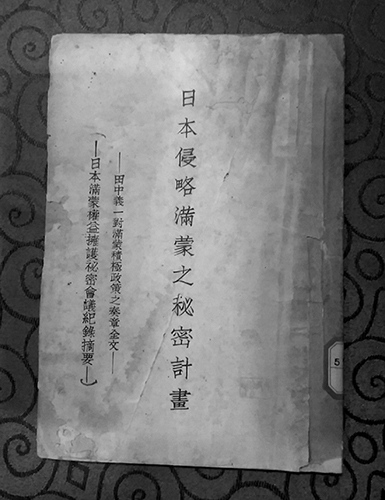 日本侵略滿蒙之秘密計畫
——田中義一對滿蒙積極政策之奏章全文——
(一日本滿蒙權益擁護秘密會議紀錄摘要一)
5